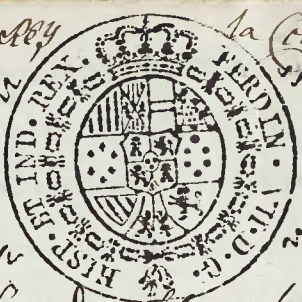 la
FERDIN. VII. D. G.
HISP. ET IND. REX.